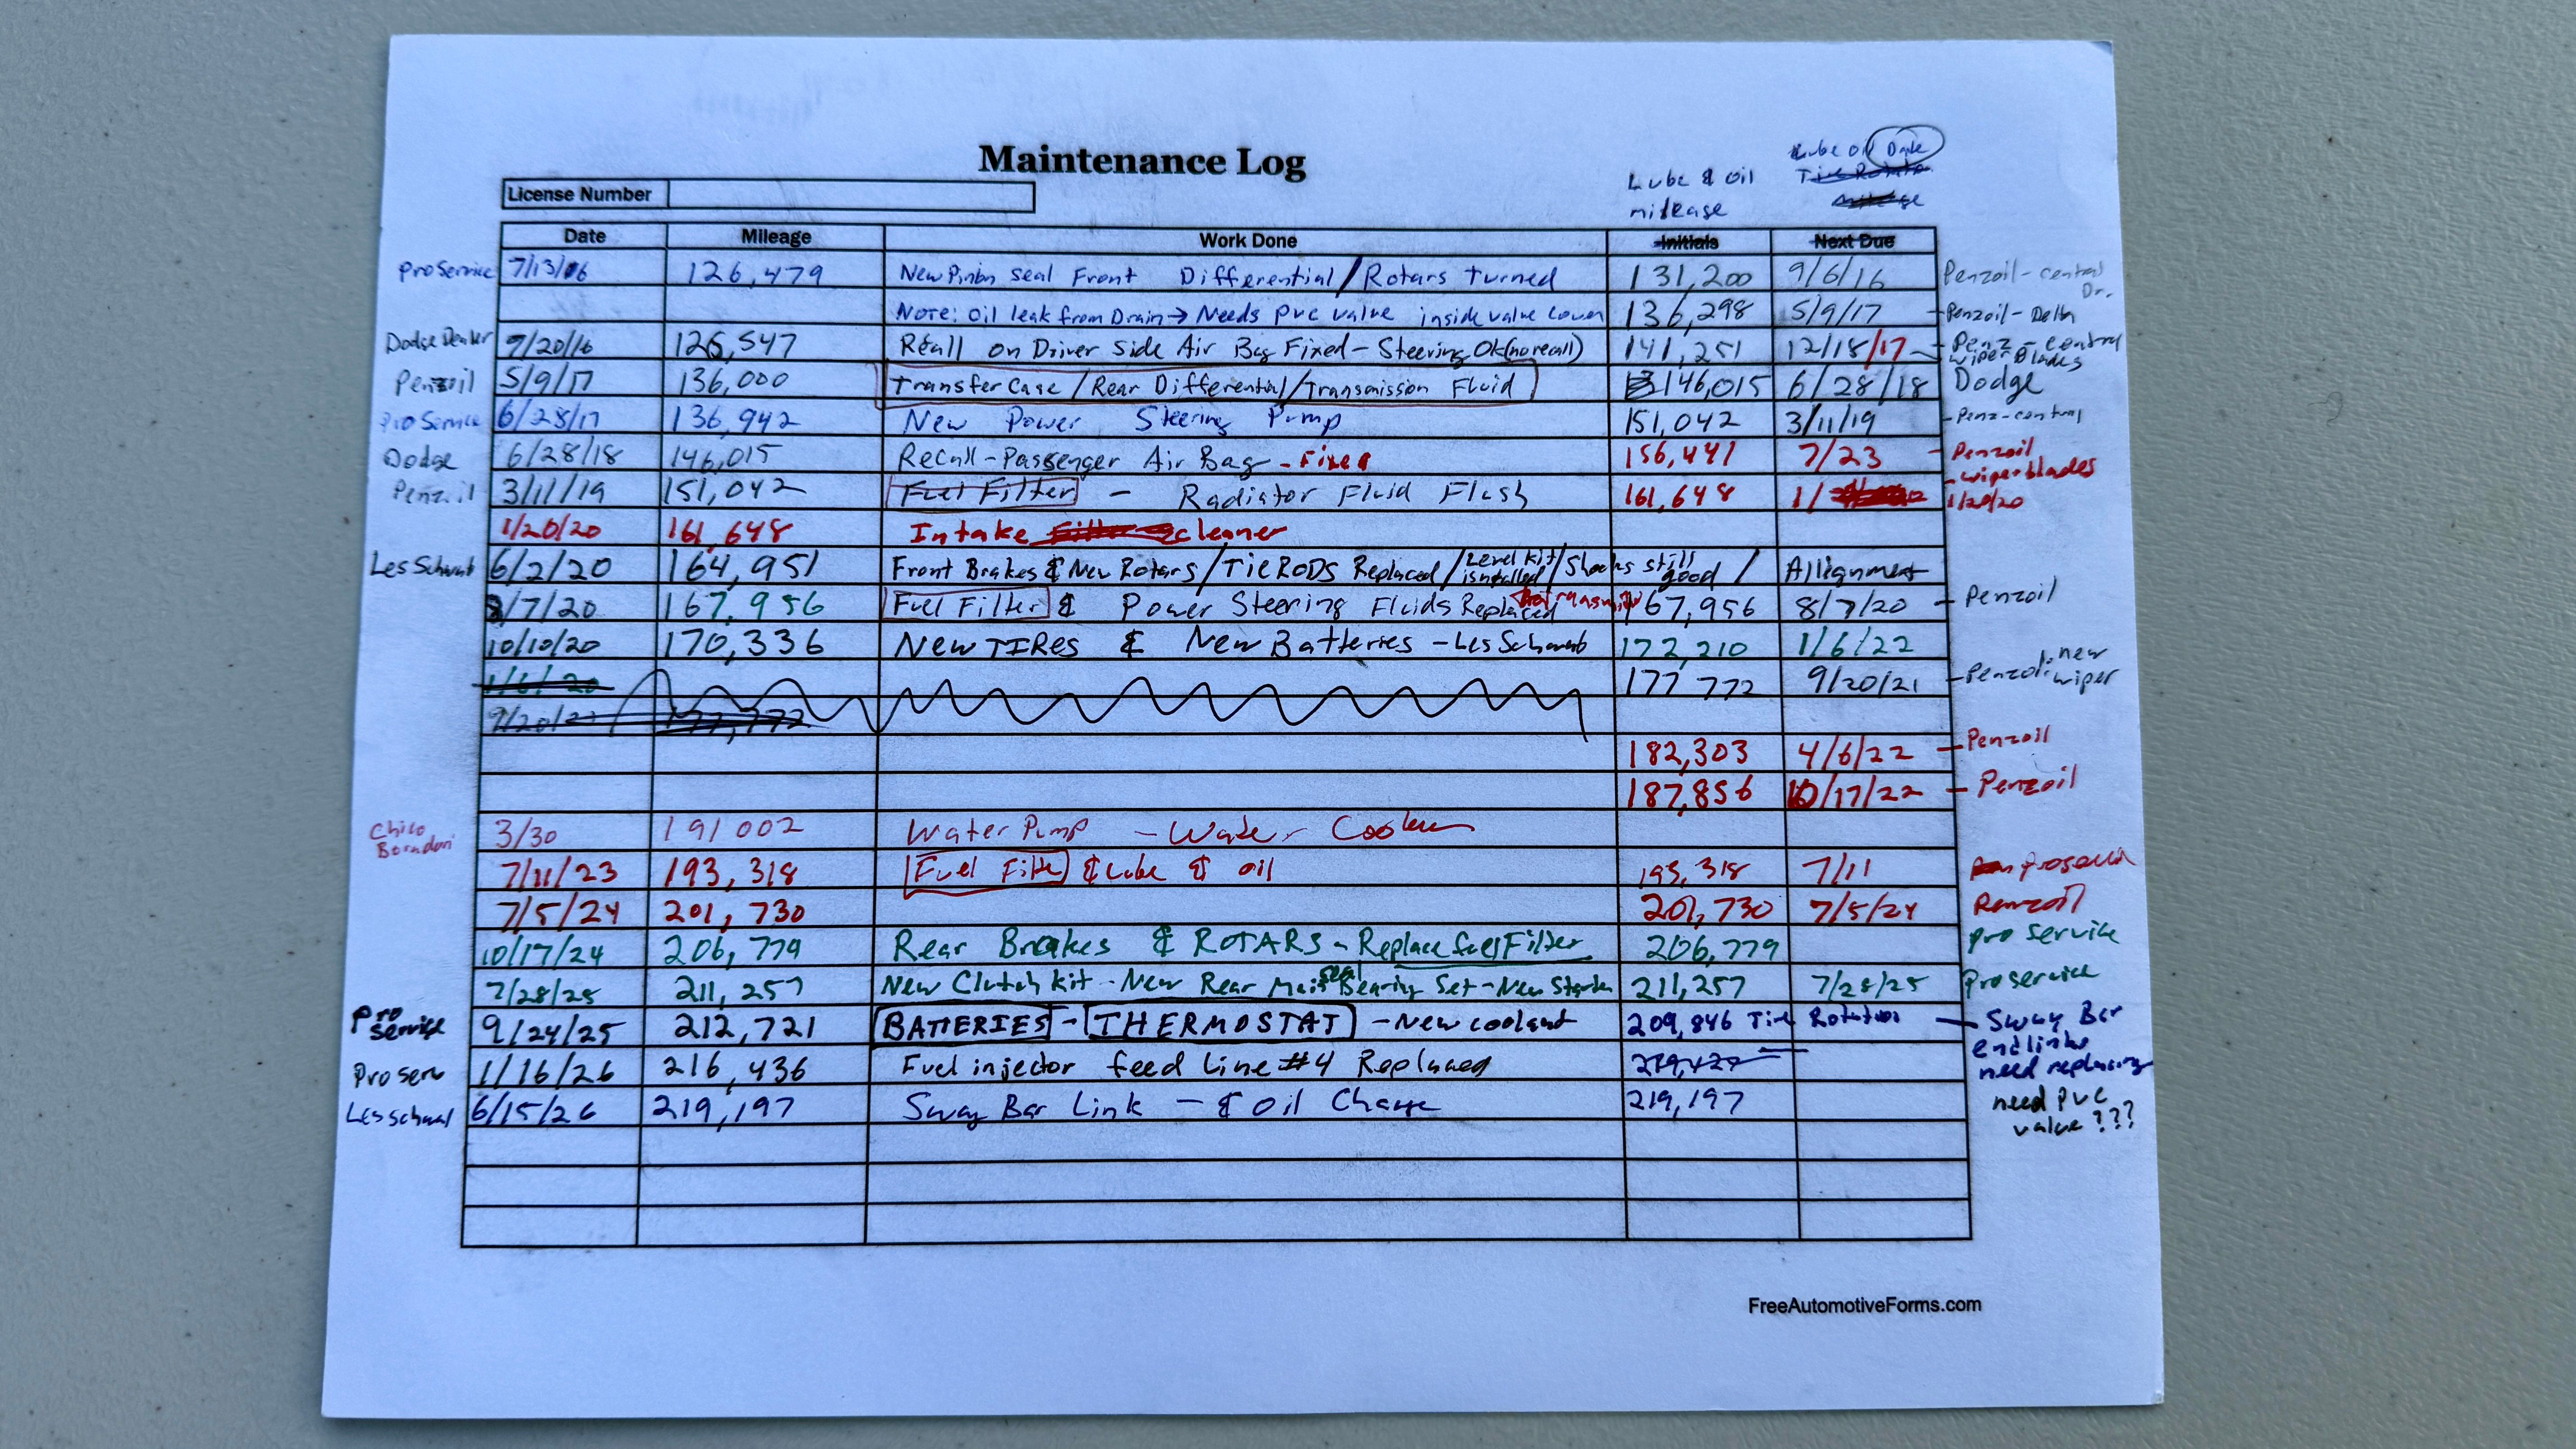 Maintenance Log
Lube & oil mileage
Lube oil Date
License Number
Date Mileage Work Done Initials Next Due
Pro Service 7/13/16 126,479 New Pinion seal Front Differential / Rotars Turned 131,200 9/6/16 Penzoil - central Dr.
Note: Oil leak from Drain → Needs pvc valve inside valve cover 136,298 5/9/17 - Penzoil - Delta
Dodge Dealer 9/20/16 126,547 Recall on Driver Side Air Bag Fixed - Steering Ok (no recall) 141,251 12/18/17 - Penz - central wiper Blades
Penzoil 5/9/17 136,000 Transfer Case / Rear Differential / Transmission Fluid 146,015 6/28/18 Dodge
Pro Service 6/28/17 136,942 New Power Steering Pump 151,042 3/11/19 - Penz - central
Dodge 6/28/18 146,015 Recall - Passenger Air Bag - Fixed 156,441 7/23 - Penzoil
Penzoil 3/11/19 151,042 Fuel Filter - Radiator Fluid Flush 161,648 1/ - wiper blades 1/20/20
1/20/20 161,648 Intake cleaner
Les Schwab 6/2/20 164,951 Front Brakes & New Rotars / Tie RODS Replaced / Level kit installed / Shocks still good / Allignment
8/7/20 167,956 Fuel Filter & Power Steering Fluids Replaced 167,956 8/7/20 - Penzoil
10/10/20 170,336 New TIRes & New Batteries - Les Schwab 172,210 1/6/22
1/6/20 177 772 9/20/21 - Penzoil: new wiper
9/20/22 177,772
182,303 4/6/22 - Penzoil
187,856 10/17/22 - Penzoil
Chico 3/30 191 002 Water Pump - Water Cooler
7/11/23 193,318 Fuel Filter & Lube & oil 193,318 7/11
7/5/24 201,730 201,730 7/5/24 Penzoil
10/17/24 206,779 Rear Brakes & ROTARS - Replace fuel Filter 206,779 Pro Service
7/28/25 211,257 New Clutch kit - New Rear Main seal Bearing Set - New Starter 211,257 7/28/25 Pro service
Pro service 9/24/25 212,721 BATTERIES - THERMOSTAT - New coolant 209,846 Tire Rotation - Sway Bar endlinks need replacing
Pro serv 1/16/26 216,436 Fuel injector feed Line #4 Replaced
Les schwab 6/15/26 219,197 Sway Bar Link - & Oil Change 219,197 need pvc valve???
FreeAutomotiveForms.com